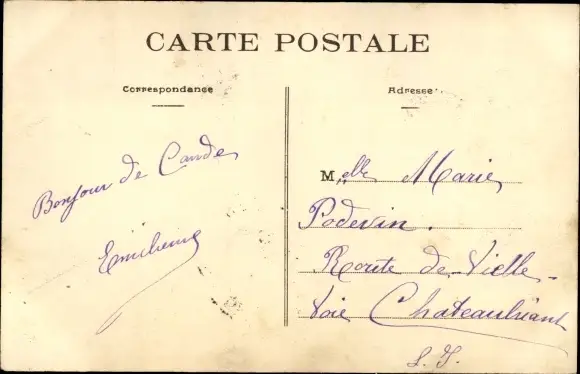 CARTE POSTALE
Correspondance
Adresse
Bonjour de Cande
Emilienne
Melle Marie
Podevin.
Route de Vielle-
Voie Chateaubriant
L. I.